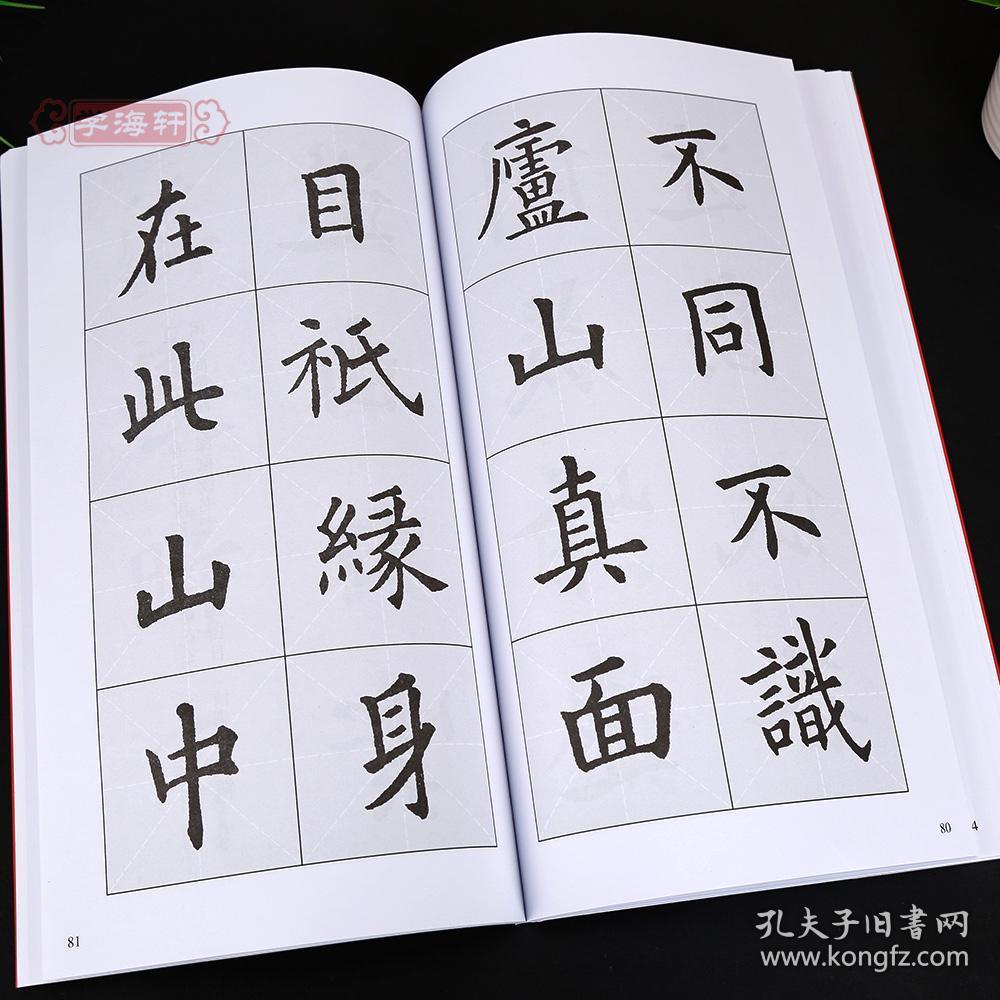 学海轩
不同不識
廬山真面
目祇緣身
在此山中
80
4
81
孔夫子旧书网
www.kongfz.com